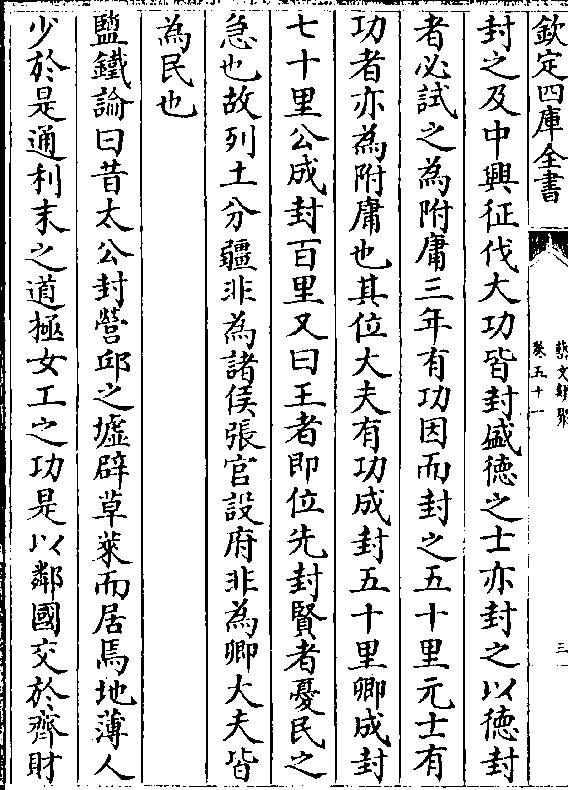 欽定四庫全書
藝文類聚
卷五十一
三
封之及中興征伐大功皆封盛徳之士亦封之以徳封
者必試之為附庸三年有功因而封之五十里元士有
功者亦為附庸也其位大夫有功成封五十里卿成封
七十里公成封百里又曰王者即位先封賢者憂民之
急也故列土分疆非為諸侯張官設府非為卿大夫皆
為民也
鹽鐵論曰昔太公封營邱之墟辟草萊而居焉地薄人
少於是通利末之道極女工之功是以鄰國交於齊財